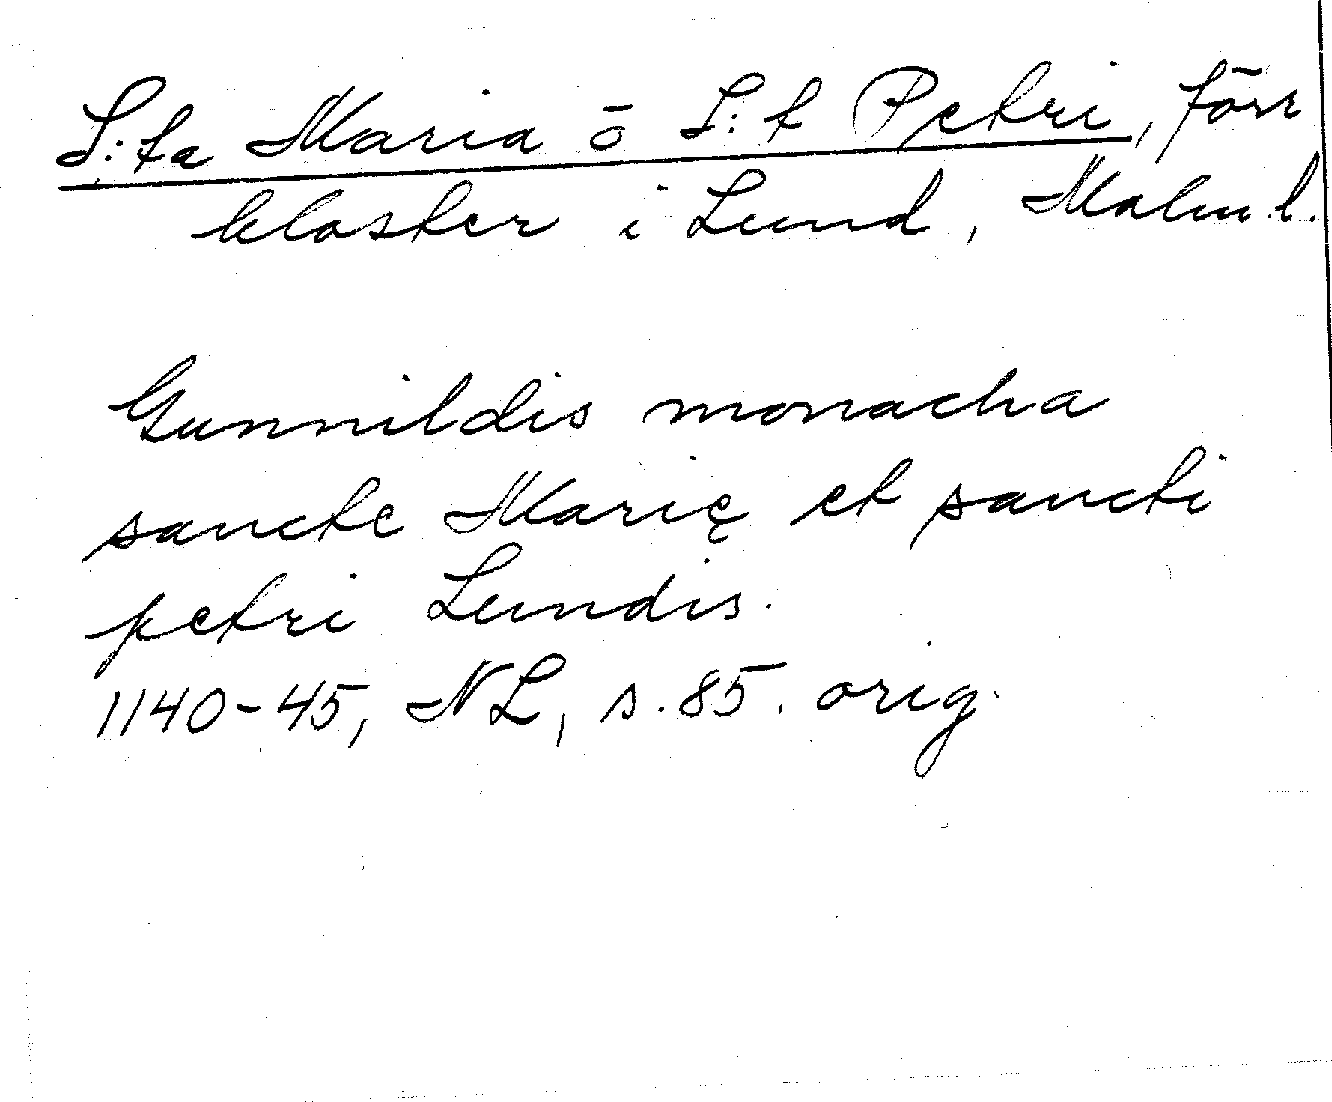 S:ta Maria o S:t Petri, förr
kloster i Lund, Malm.l.
Gunnildis monacha
sancte Marię et sancti
petri Lundis.
1140-45, NL, s. 85. orig.